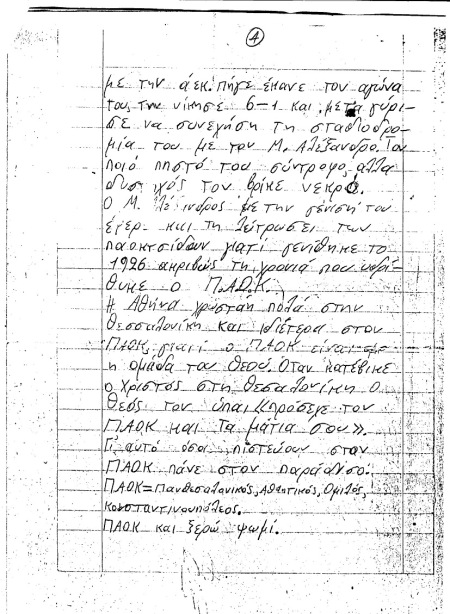 4
με την άεκ. Πήγε έκανε τον αγώνα
του, την νίκησε 6-1 και μετά γύρι-
σε να συνεχήση τη σταδιοδρο-
μία του με τον Μ. Αλέξανδρο. Τον
ποιό πηστό του σύντροφο, αλλα
δυστιχός τον βρίκε νεκρό.
Ο Μ. με την γένισή του
έφερ και τη λύτρωσει των
παοκτσίδων γιατί γενίθηκε το
1926 ακριβώς τη χρονιά που υδρί-
θυκε ο Π.Α.Ο.Κ.
Η Αθήνα χροστάη πολά στην
Θεσσαλονίκη και ιδιέτερα στον
ΠΑΟΚ, γιατί ο ΠΑΟΚ είναι
η ομάδα του Θεού. Όταν κατέβικε
ο Χριστός στη Θεσαλονίκη ο
Θεός του είπαι «πρόσεχε τον
ΠΑΟΚ και τα μάτια σου».
Γι' αυτό όσοι πιστεύουν σταν
ΠΑΟΚ πάνε στον παράδισο.
ΠΑΟΚ=Πανθεσαλονικός, Αθλητικός, Ομιλός,
Κονσταντινουπόλεος.
ΠΑΟΚ και ξερώ ψωμί.